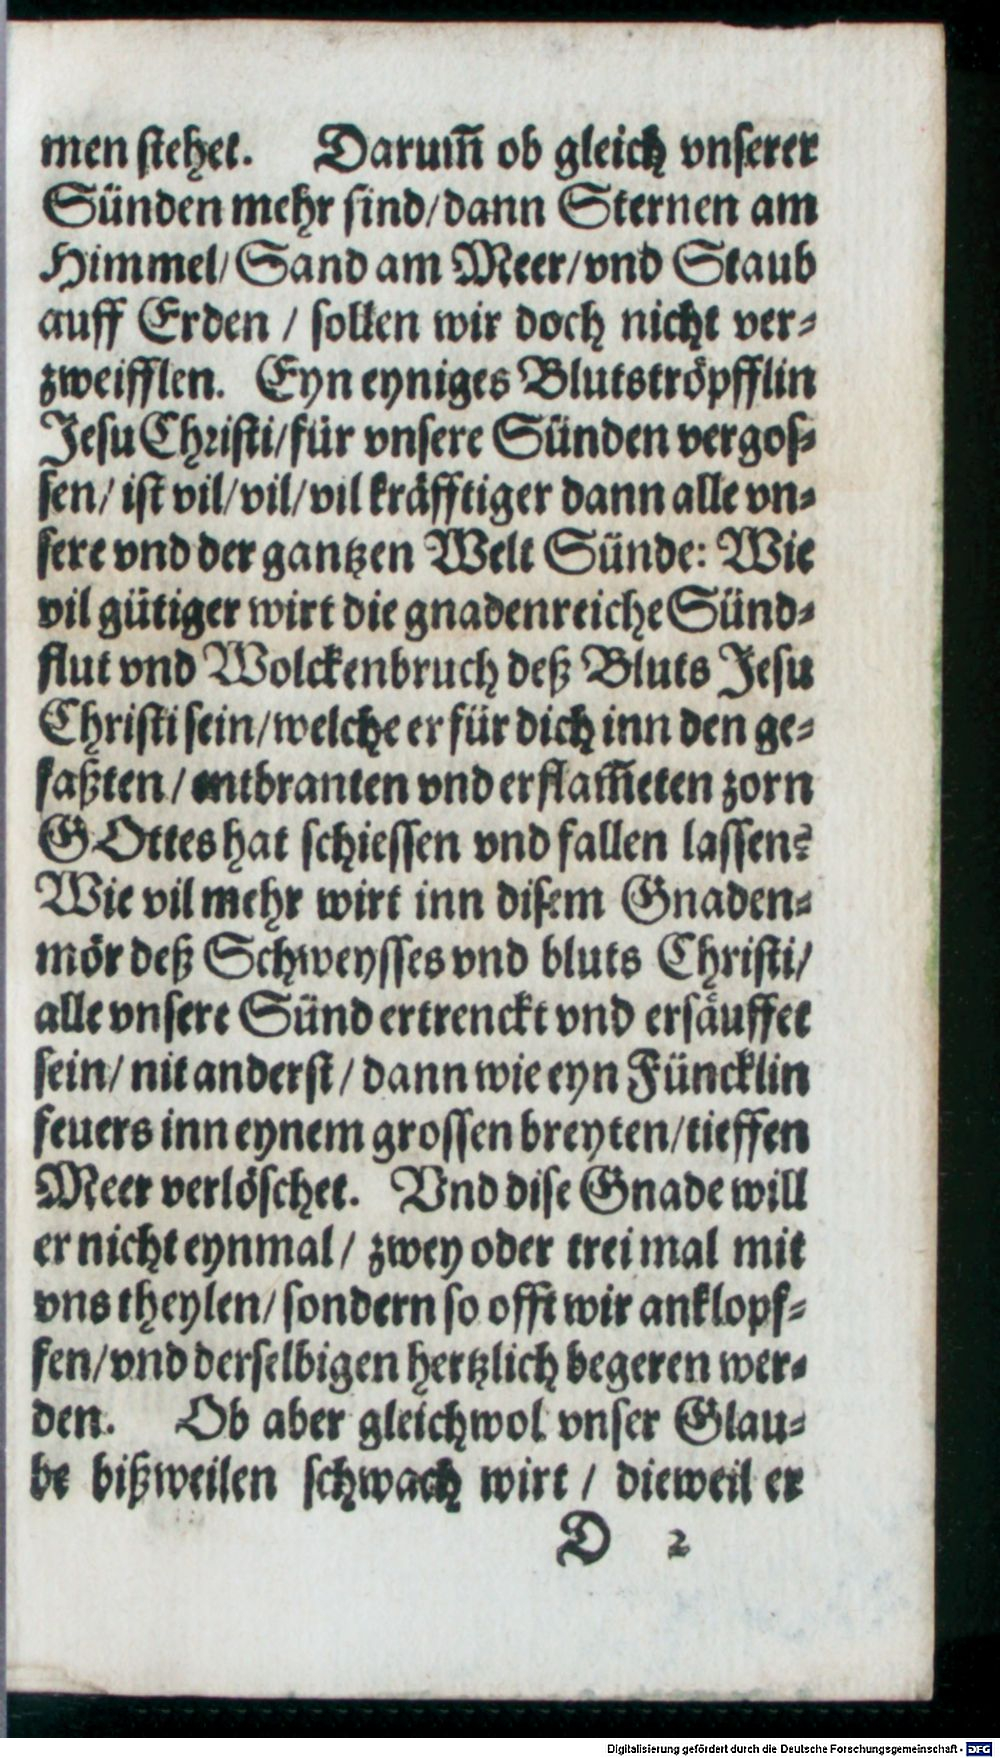 men stehet. Darum̃ ob gleich vnserer
Sünden mehr sind/dann Sternen am
Himmel/Sand am Meer/vnd Staub
auff Erden / sollen wir doch nicht ver-
zweifflen. Eyn eyniges Blutströpfflin
Jesu Christi/für vnsere Sünden vergos-
sen/ ist vil/vil/vil kräfftiger dann alle vn-
sere vnd der gantzen Welt Sünde: Wie
vil gütiger wirt die gnadenreiche Sünd-
flut vnd Wolckenbruch deß Bluts Jesu
Christi sein/welche er für dich inn den ge-
faßten / entbranten vnd erflam̃eten zorn
GOttes hat schiessen vnd fallen lassen?
Wie vil mehr wirt inn disem Gnaden-
mör deß Schweysses vnd bluts Christi/
alle vnsere Sünd ertrenckt vnd ersäuffet
sein/ nit anderst / dann wie eyn Füncklin
feuers inn eynem grossen breyten/tieffen
Meer verlöschet. Vnd dise Gnade will
er nicht eynmal/ zwey oder treimal mit
vns theylen/sondern so offt wir anklopf-
fen/vnd derselbigen hertzlich begeren wer-
den. Ob aber gleichwol vnser Glau-
be bißweilen schwach wirt / dieweil er
D 2
Digitalisierung gefördert durch die Deutsche Forschungsgemeinschaft - DFG